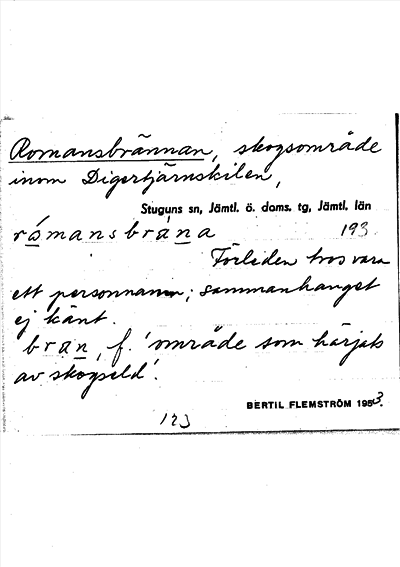 Romansbrännan, skogsområde
inom Digertjärnskilen,
Stuguns sn, Jämtl. ö. doms. tg, Jämtl. län
rómansbrána 193.
Förleden tros vara
ett personnamn; sammanhanget
ej känt.
bran, f. 'område som härjats
av skogseld'.
BERTIL FLEMSTRÖM 1953.
123